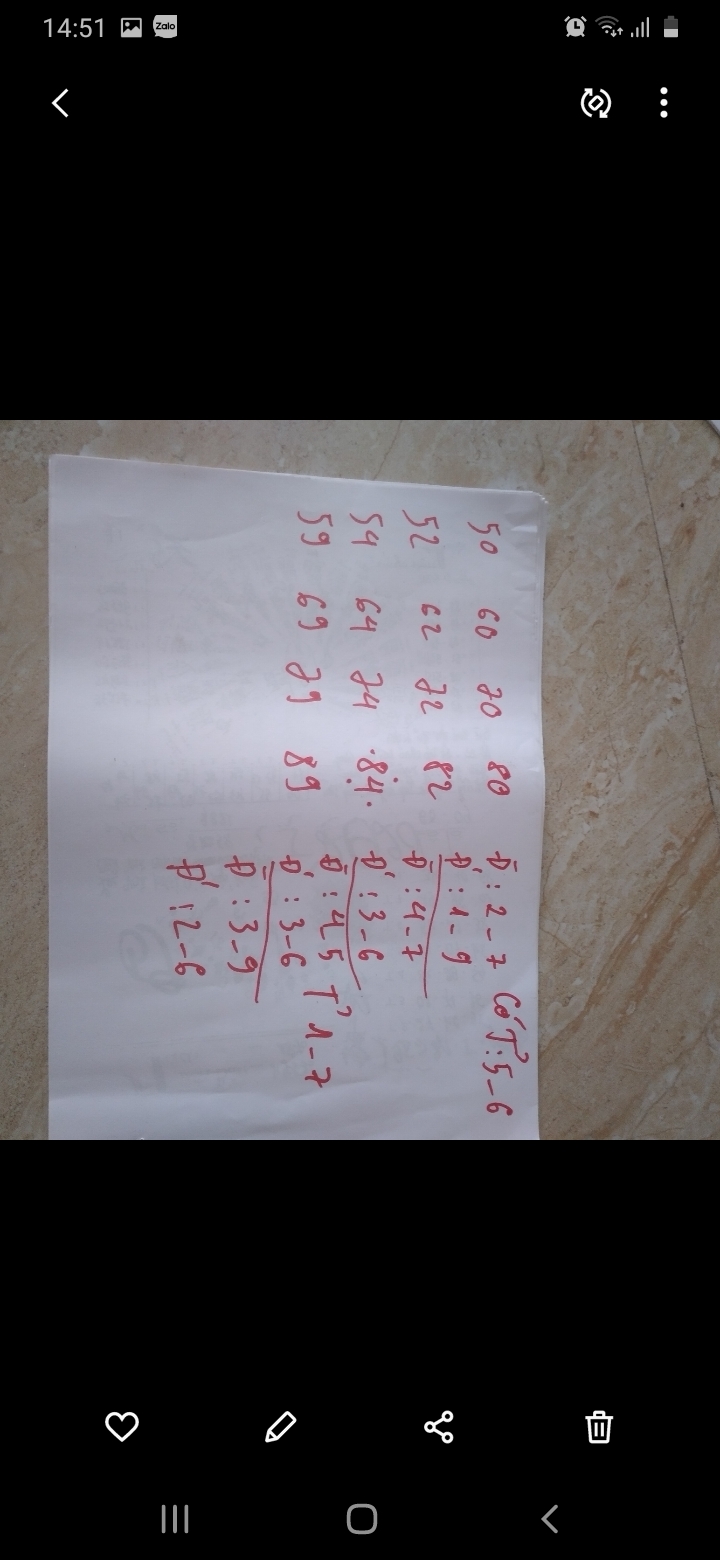 14:51 Zalo
50 60 70 80 Đ: 2-7 Có T̉: 5-6
Đ': 1-9
52 62 72 82 Đ: 4-7
54 64 74 .84. Đ': 3-6
Đ: 4 5 T̉ 1-7
59 69 79 89 Đ': 3-6
Đ: 3-9
Đ': 2-6